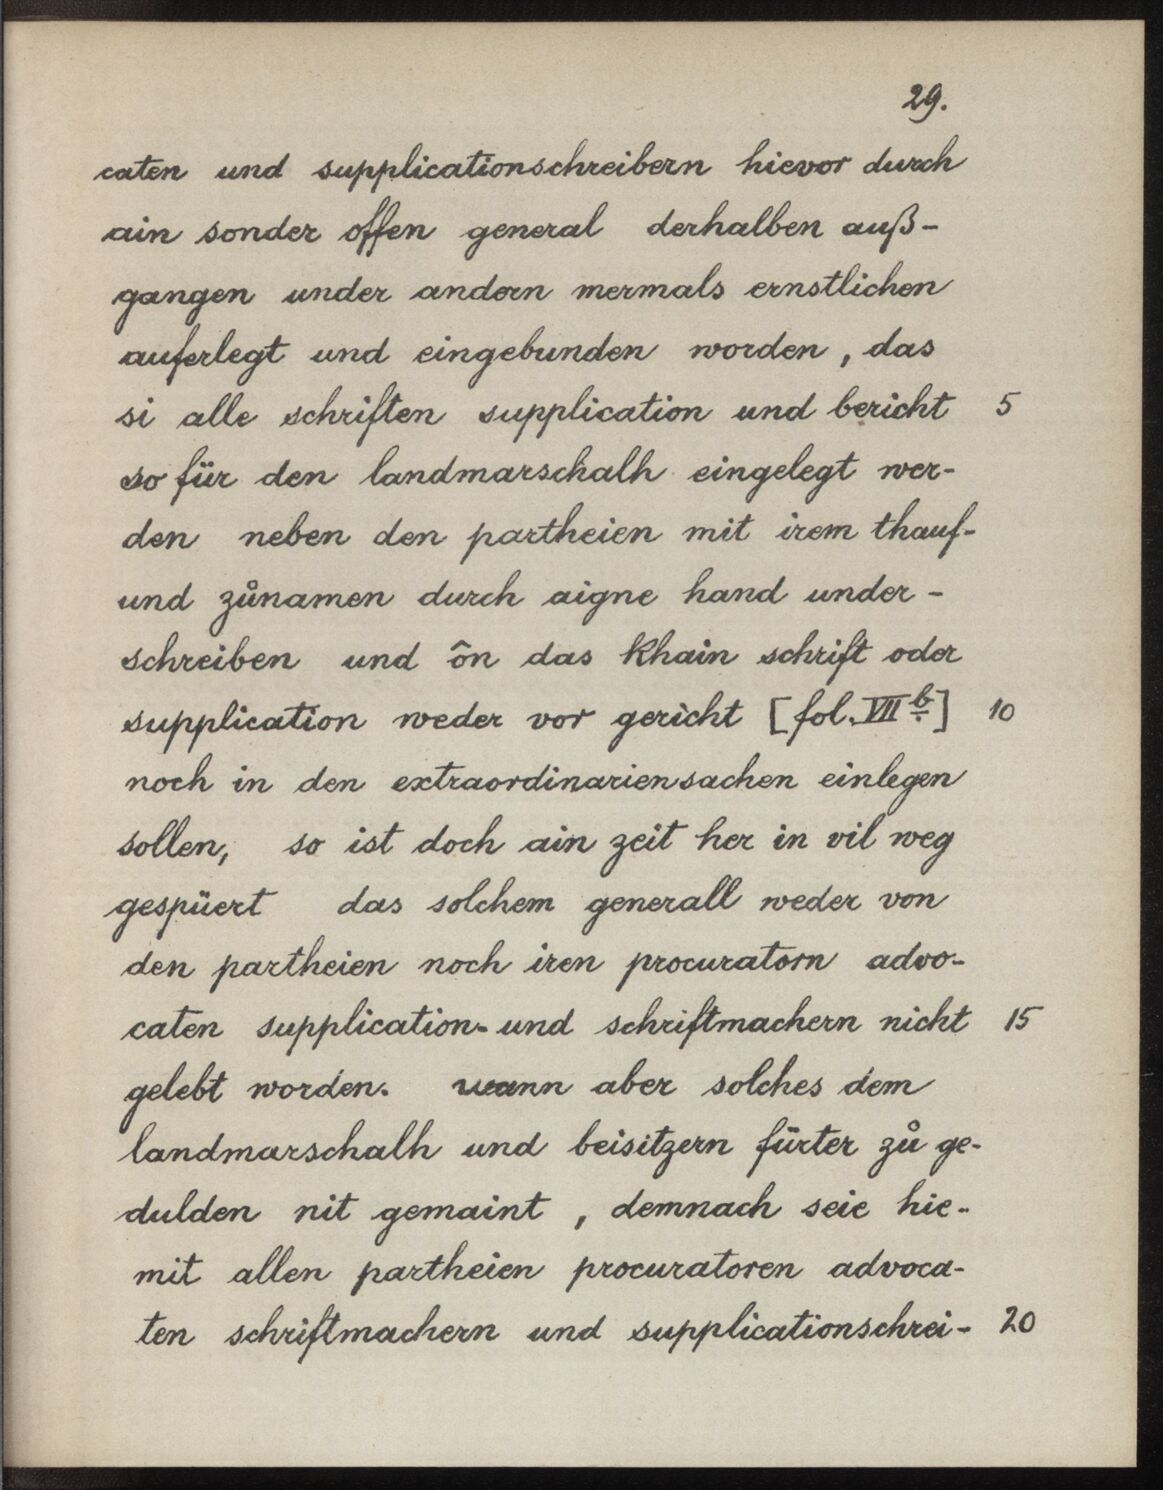 29.
caten und supplicationschreibern hievor durch
ain sonder offen general derhalben auß-
gangen under andern mermals ernstlichen
auferlegt und eingebunden worden, das
si alle schriften supplication und bericht 5
so für den landmarschalh eingelegt wer-
den neben den partheien mit irem thauf-
und zůnamen durch aigne hand under-
schreiben und ôn das khain schrift oder
supplication weder vor gericht [fol. VII b.] 10
noch in den extraordinariensachen einlegen
sollen, so ist doch ain zeit her in vil weg
gespüert das solchem generall weder von
den partheien noch iren procuratorn advo-
caten supplication- und schriftmachern nicht 15
gelebt worden. wann aber solches dem
landmarschalh und beisitzern fürter zů ge-
dulden nit gemaint, demnach seie hie-
mit allen partheien procuratoren advoca-
ten schriftmachern und supplicationschrei- 20